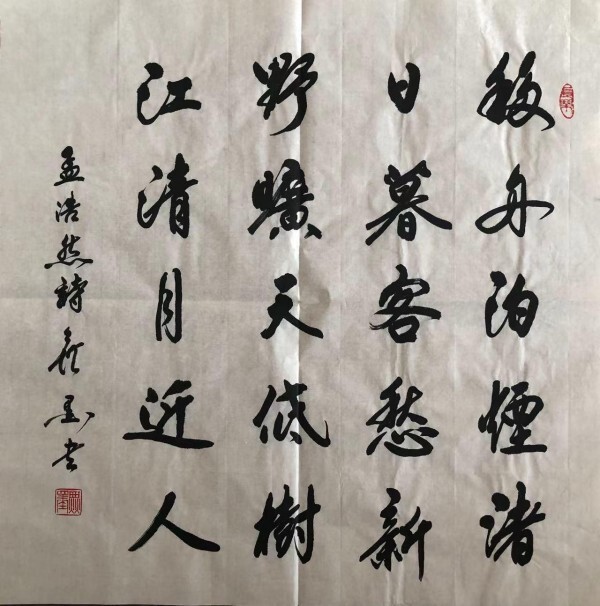 移舟泊煙渚
日暮客愁新
野曠天低樹
江清月近人
孟浩然詩 墨書